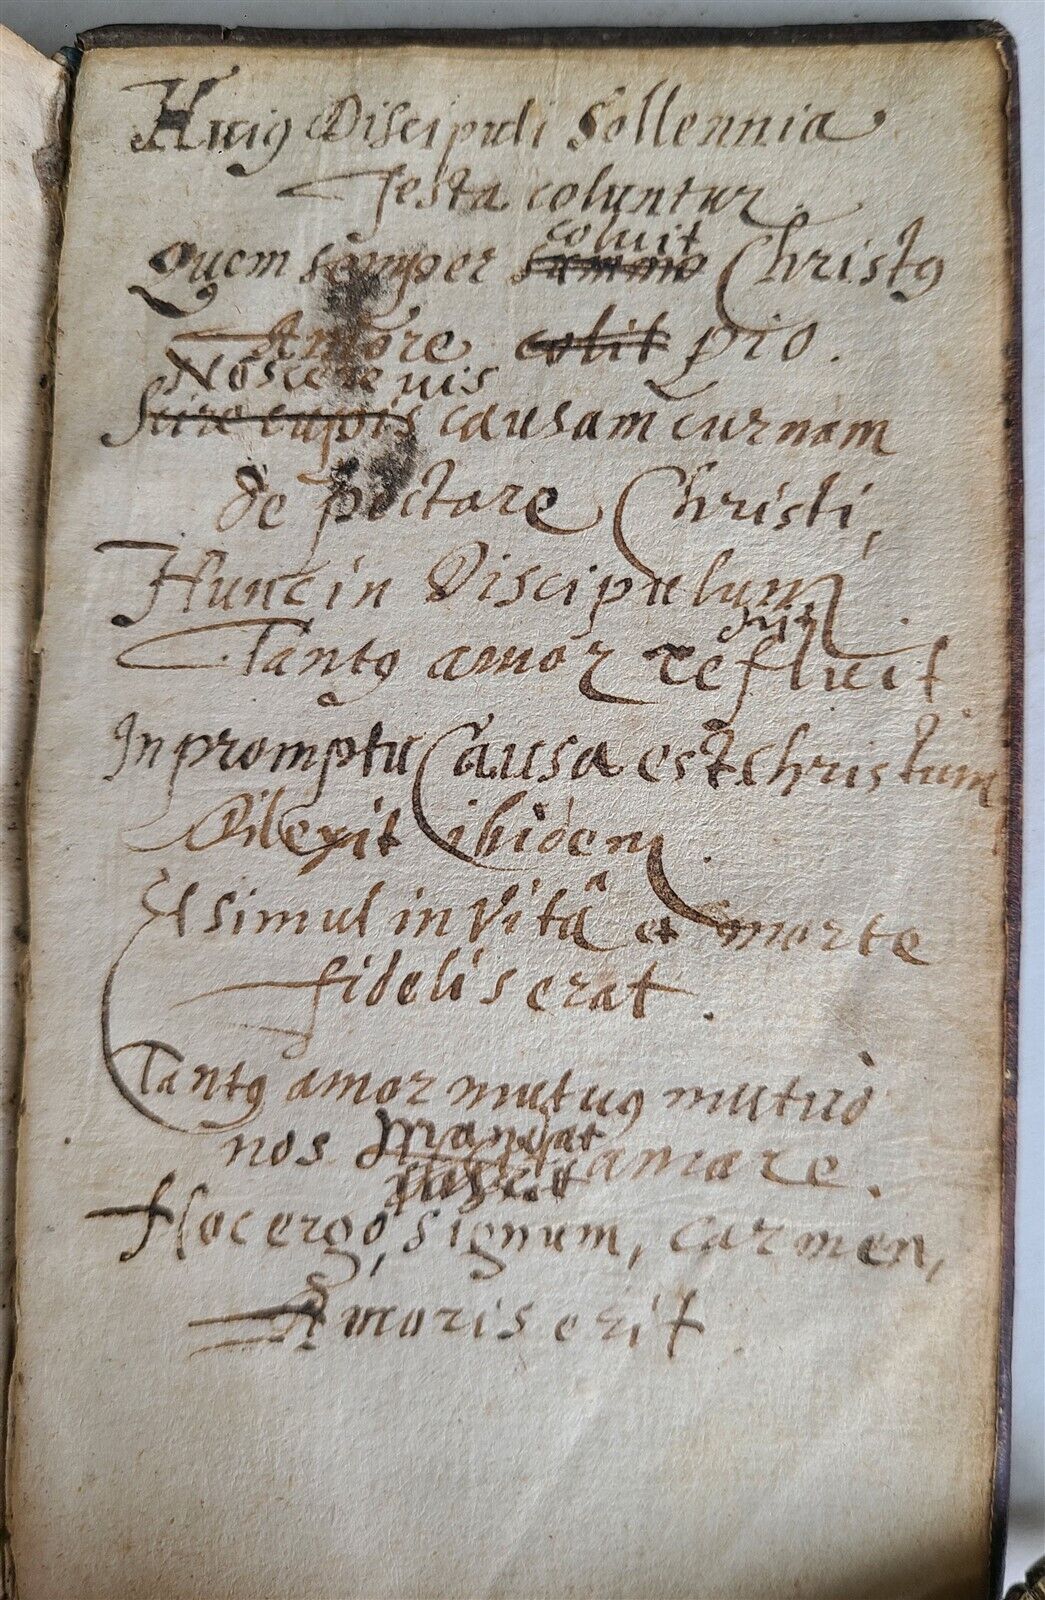 Huiꝰ Discipuli Sollennia
festa coluntur
coluit
Quem semper summo Christꝰ
Amore colit pio.
Noscere uis
Scire cupis causam cur nam
de pectore Christi,
Hunc in Discipulum
Tantꝰ amor refluit.
In promptu Causa est Christum
Dilexit ibidem.
Et simul in Vitâ et morte
fidelis erat.
Tantꝰ amor mutuꝰ mutuò
nos Mandat amare.
Hoc ergo, signum, carmen,
Amoris erit